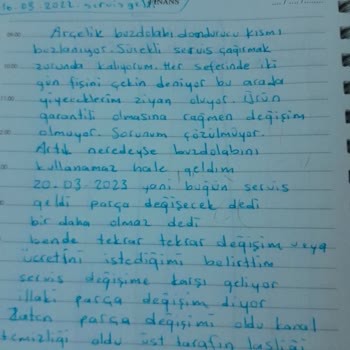 16.03.2022. servis geldi
FİNANS
Arçelik buzdolabı dondurucu kısmı
buzlanıyor. Sürekli servis çağırmak
zorunda kalıyorum. Her seferinde iki
gün fişini çekin deniyor bu arada
yiyeceklerim ziyan oluyor. Ürün
garantili olmasına rağmen değişim
olmuyor. Sorunum çözülmüyor.
Artık neredeyse buzdolabını
kullanamaz hale geldim
20.03.2023 yani bugün servis
geldi parça değişecek dedi
bir daha olmaz dedi
bende tekrar tekrar değişim veya
ücretini istediğimi belirttim
servis değişime karşı geliyor
illaki parça değişim diyor
Zaten parça değişimi oldu kanal
temizliği oldu üst tarafın